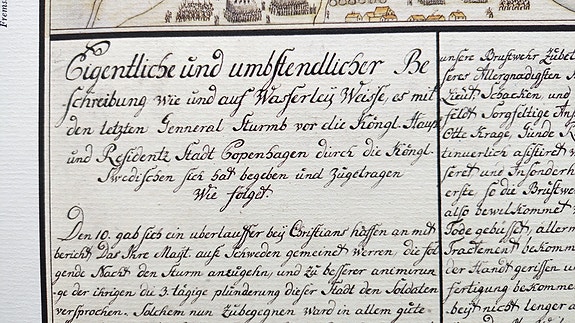 Frems
Eigentliche und umbstendlicher Be
schreibung wie und auf Wasserleij Weisse, es mit
den letzten Genneral Sturmb vor die Königl. Haupt
und Residentz Stadt Copenhagen durch die Königl.
Swedischen sich hat begeben und Zugetragen
Wie folget.
Den 10. gab sich ein uberlauffer beij Christians haffen an mit
bericht Das Ihre Maijt. auß Schweden gemeinet weren, die fol
gende Nacht den Sturm anzugehn, und zu besserer animirun
ge der ihrigen die 3. tägige plünderung dieser Stadt den Soldaten
versprochen. Solchem nun Zubegegnen ward in allem gute
unsere Brustwehr Zubet
seres Allergnädigsten
Lieut. Schacken, und
feldt Sorgfeltige An
Otte Krage, Günde R
tinuerlich assistiret w
seret und Insonderh
erste so die Brustwe
also bewelkommet
Tode gebüsset, allerm
Tractement bekomm
der Handt gerissen u
fertigung bekomme
beijt nicht lenger a